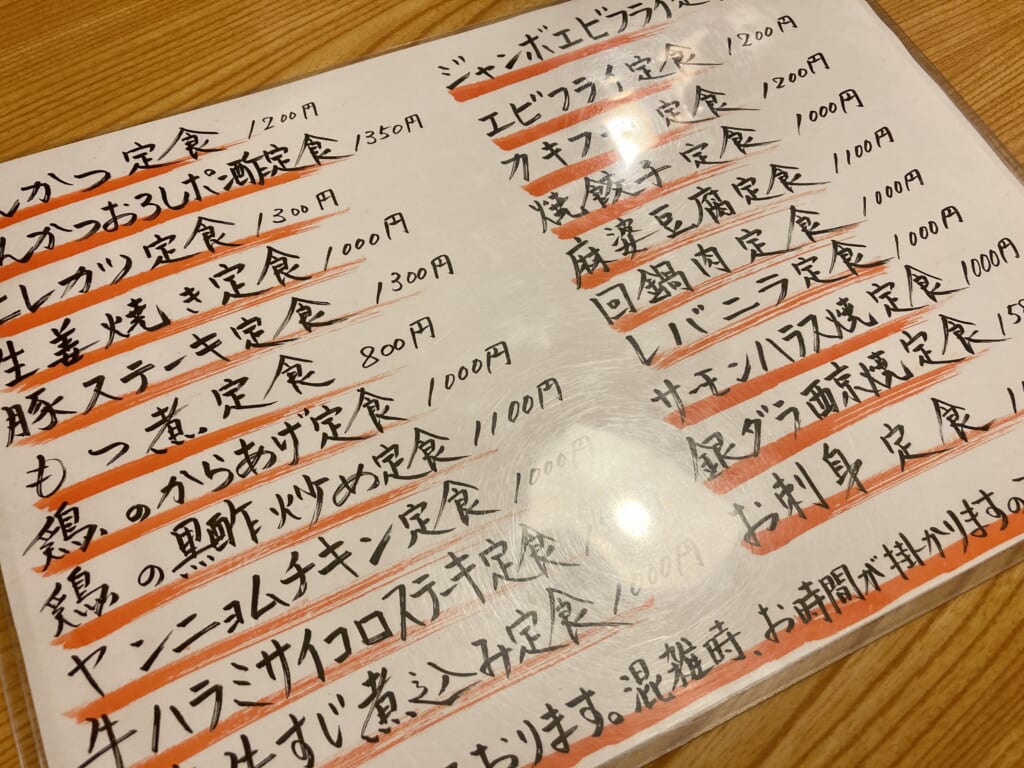 かつ定食 1200円
んかつおろしポン酢定食 1350円
ヒレカツ定食 1300円
生姜焼き定食 1000円
豚ステーキ定食 1300円
もつ煮定食 800円
鶏のからあげ定食 1000円
鶏の黒酢炒め定食 1100円
ヤンニョムチキン定食 1000円
牛ハラミサイコロステーキ定食
牛すじ煮込み定食 1000円
ジャンボエビフライ定
エビフライ定食 1200円
カキフライ定食 1200円
焼餃子定食 1000円
麻婆豆腐定食 1100円
回鍋肉定食 1000円
レバニラ定食 1000円
サーモンハラス焼定食 1000円
銀ダラ西京焼定食
お刺身定食
おります。混雑時、お時間が掛かりますの